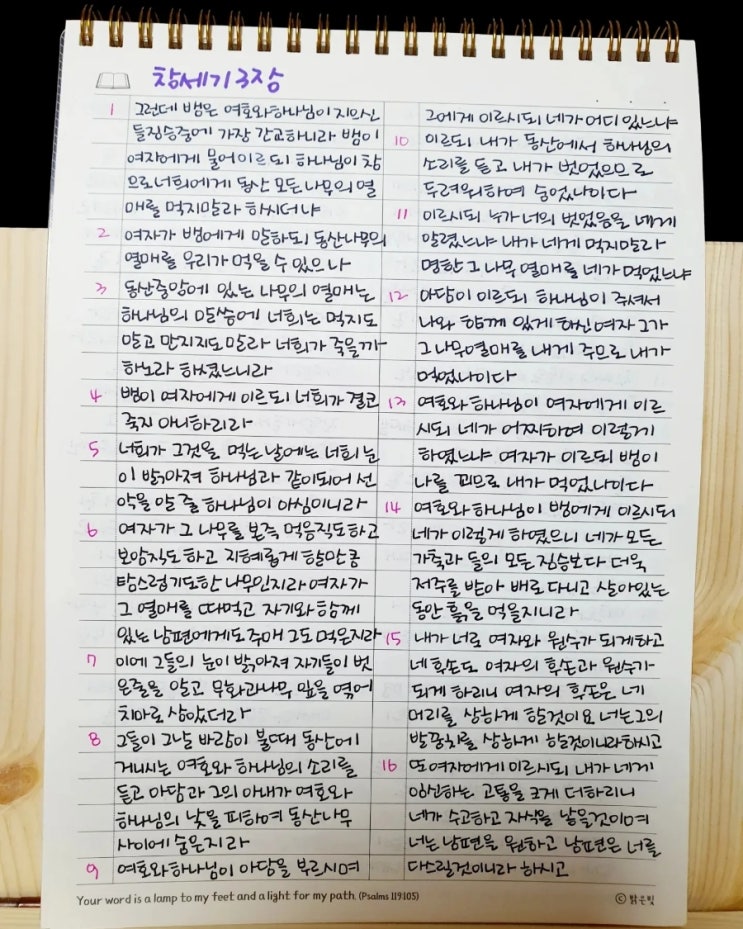 창세기 3장
1 그런데 뱀은 여호와하나님이 지으신
들짐승중에 가장 간교하니라 뱀이
여자에게 물어이르되 하나님이 참
으로너희에게 동산 모든나무의 열
매를 먹지말라 하시더냐
2 여자가 뱀에게 말하되 동산나무의
열매를 우리가 먹을 수 있으나
3 동산중앙에 있는 나무의 열매는
하나님의 말씀에 너희는 먹지도
말고 만지지도 말라 너희가 죽을까
하노라 하셨느니라
4 뱀이 여자에게 이르되 너희가 결코
죽지 아니하리라
5 너희가 그것을 먹는날에는 너희 눈
이 밝아져 하나님과 같이되어 선
악을 알 줄 하나님이 아심이니라
6 여자가 그 나무를 본즉 먹음직도하고
보암직도 하고 지혜롭게 할만큼
탐스럽기도한 나무인지라 여자가
그 열매를 따먹고 자기와 함께
있는 남편에게도 주매 그도 먹은지라
7 이에 그들의 눈이 밝아져 자기들이 벗
은줄을 알고 무화과나무 잎을 엮어
치마로 삼았더라
8 그들이 그날 바람이 불때 동산에
거니시는 여호와 하나님의 소리를
듣고 아담과 그의 아내가 여호와
하나님의 낯을 피하여 동산나무
사이에 숨은지라
9 여호와하나님이 아담을 부르시며
그에게 이르시되 네가 어디 있느냐
10 이르되 내가 동산에서 하나님의
소리를 듣고 내가 벗었으므로
두려워하여 숨었나이다
11 이르시되 누가 너의 벗었음을 네게
알렸느냐 내가 네게 먹지말라
명한 그 나무 열매를 네가 먹었느냐
12 아담이 이르되 하나님이 주셔서
나와 함께 있게 하신 여자 그가
그 나무열매를 내게 주므로 내가
먹었나이다
13 여호와 하나님이 여자에게 이르
시되 네가 어찌하여 이렇게
하였느냐 여자가 이르되 뱀이
나를 꾀므로 내가 먹었나이다
14 여호와하나님이 뱀에게 이르시되
네가 이렇게 하였으니 네가 모든
가축과 들의 모든 짐승보다 더욱
저주를 받아 배로 다니고 살아있는
동안 흙을 먹을지니라
15 내가 너로 여자와 원수가 되게하고
네 후손도 여자의 후손과 원수가
되게 하리니 여자의 후손은 네
머리를 상하게 할것이요 너는그의
발꿈치를 상하게 할것이니라하시고
16 또 여자에게 이르시되 내가 네게
임신하는 고통을 크게 더하리니
네가 수고하고 자식을 낳을것이며
너는 남편을 원하고 남편은 너를
다스릴것이니라 하시고
Your word is a lamp to my feet and a light for my path. (Psalms 119:105)
ⓒ 밝은빛